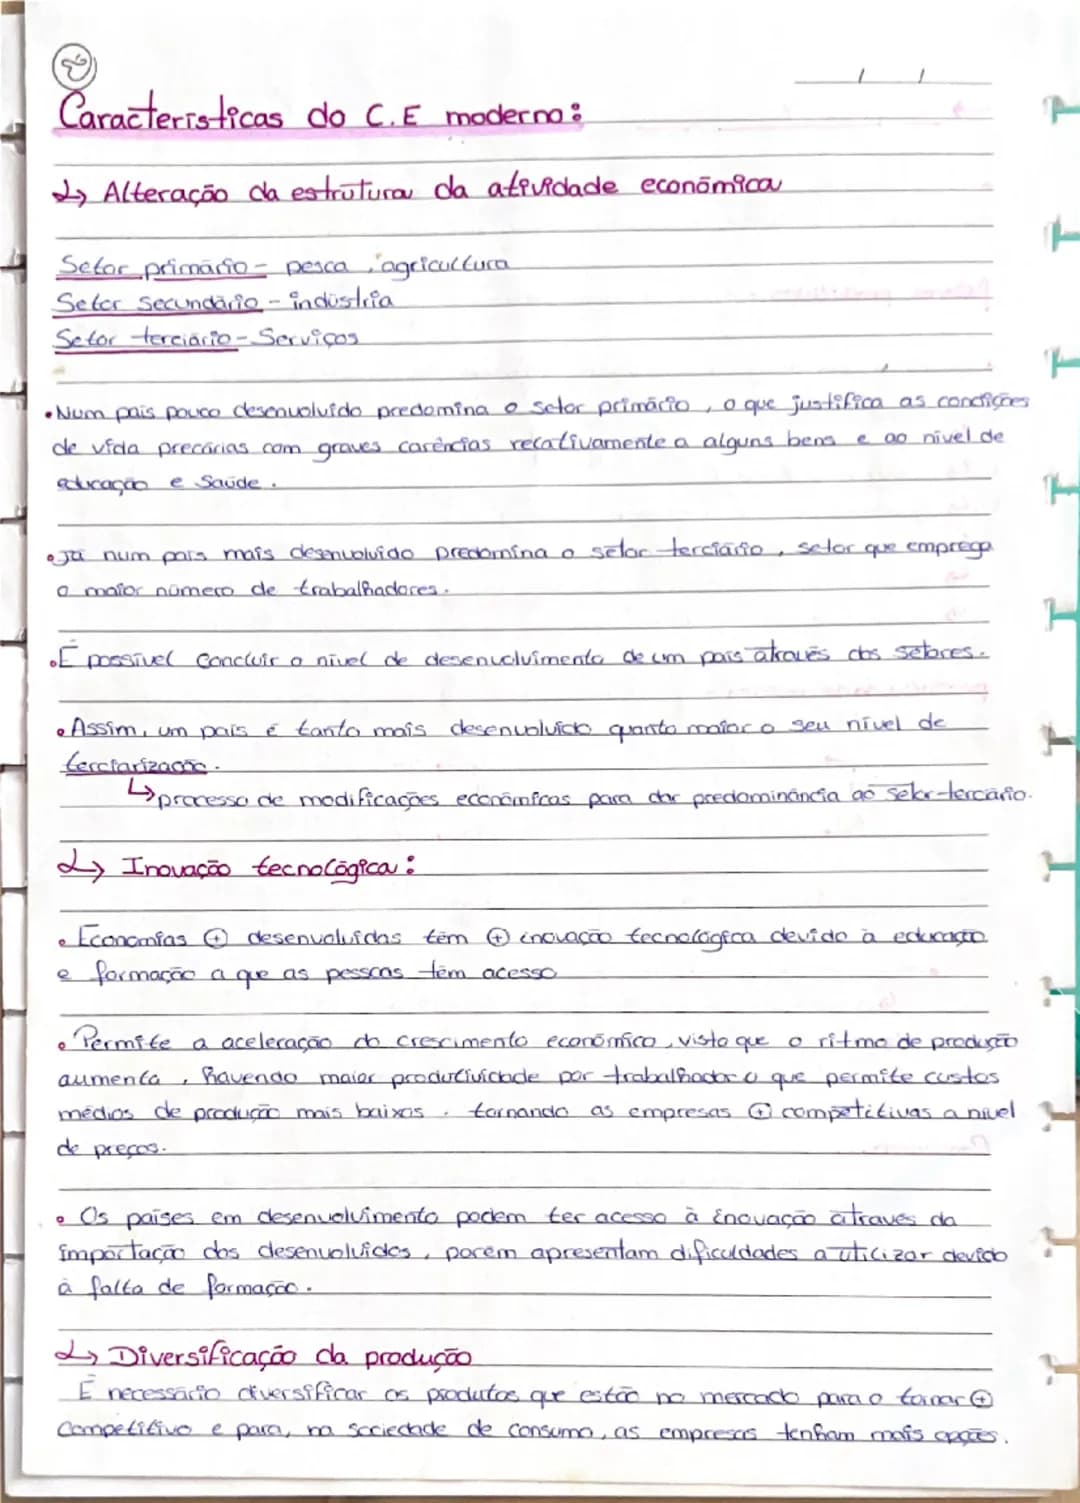 Características do C.E moderno:
↳ Alteração da estrutura da atividade económica
Setor primário - pesca, agricultura
Setor secundário - indústria
Setor terciário - Serviços
• Num país pouco desenvolvido predomina o setor primário, o que justifica as condições
de vida precárias com graves carências relativamente a alguns bens e ao nível de
educação e Saúde.
• Já num país mais desenvolvido predomina o setor terciário, setor que emprega
o maior número de trabalhadores.
• É possível concluir o nível de desenvolvimento de um país através dos setores.
• Assim, um país é tanto mais desenvolvido quanto maior o seu nível de
terciarização.
↳ processo de modificações económicas para dar predominância ao setor terciário.
↳ Inovação tecnológica:
• Economias ⊕ desenvolvidas têm ⊕ inovação tecnológica devido à educação
e formação a que as pessoas têm acesso
• Permite a aceleração do crescimento económico, visto que o ritmo de produção
aumenta, havendo maior produtividade por trabalhador o que permite custos
médios de produção mais baixos, tornando as empresas ⊕ competitivas a nível
de preços.
• Os países em desenvolvimento podem ter acesso à inovação através da
importação dos desenvolvidos, porém apresentam dificuldades a utilizar devido
à falta de formação.
↳ Diversificação da produção
É necessário diversificar os produtos que estão no mercado para o tornar ⊕
Competitivo e para, na sociedade de consumo, as empresas tenham mais opções.